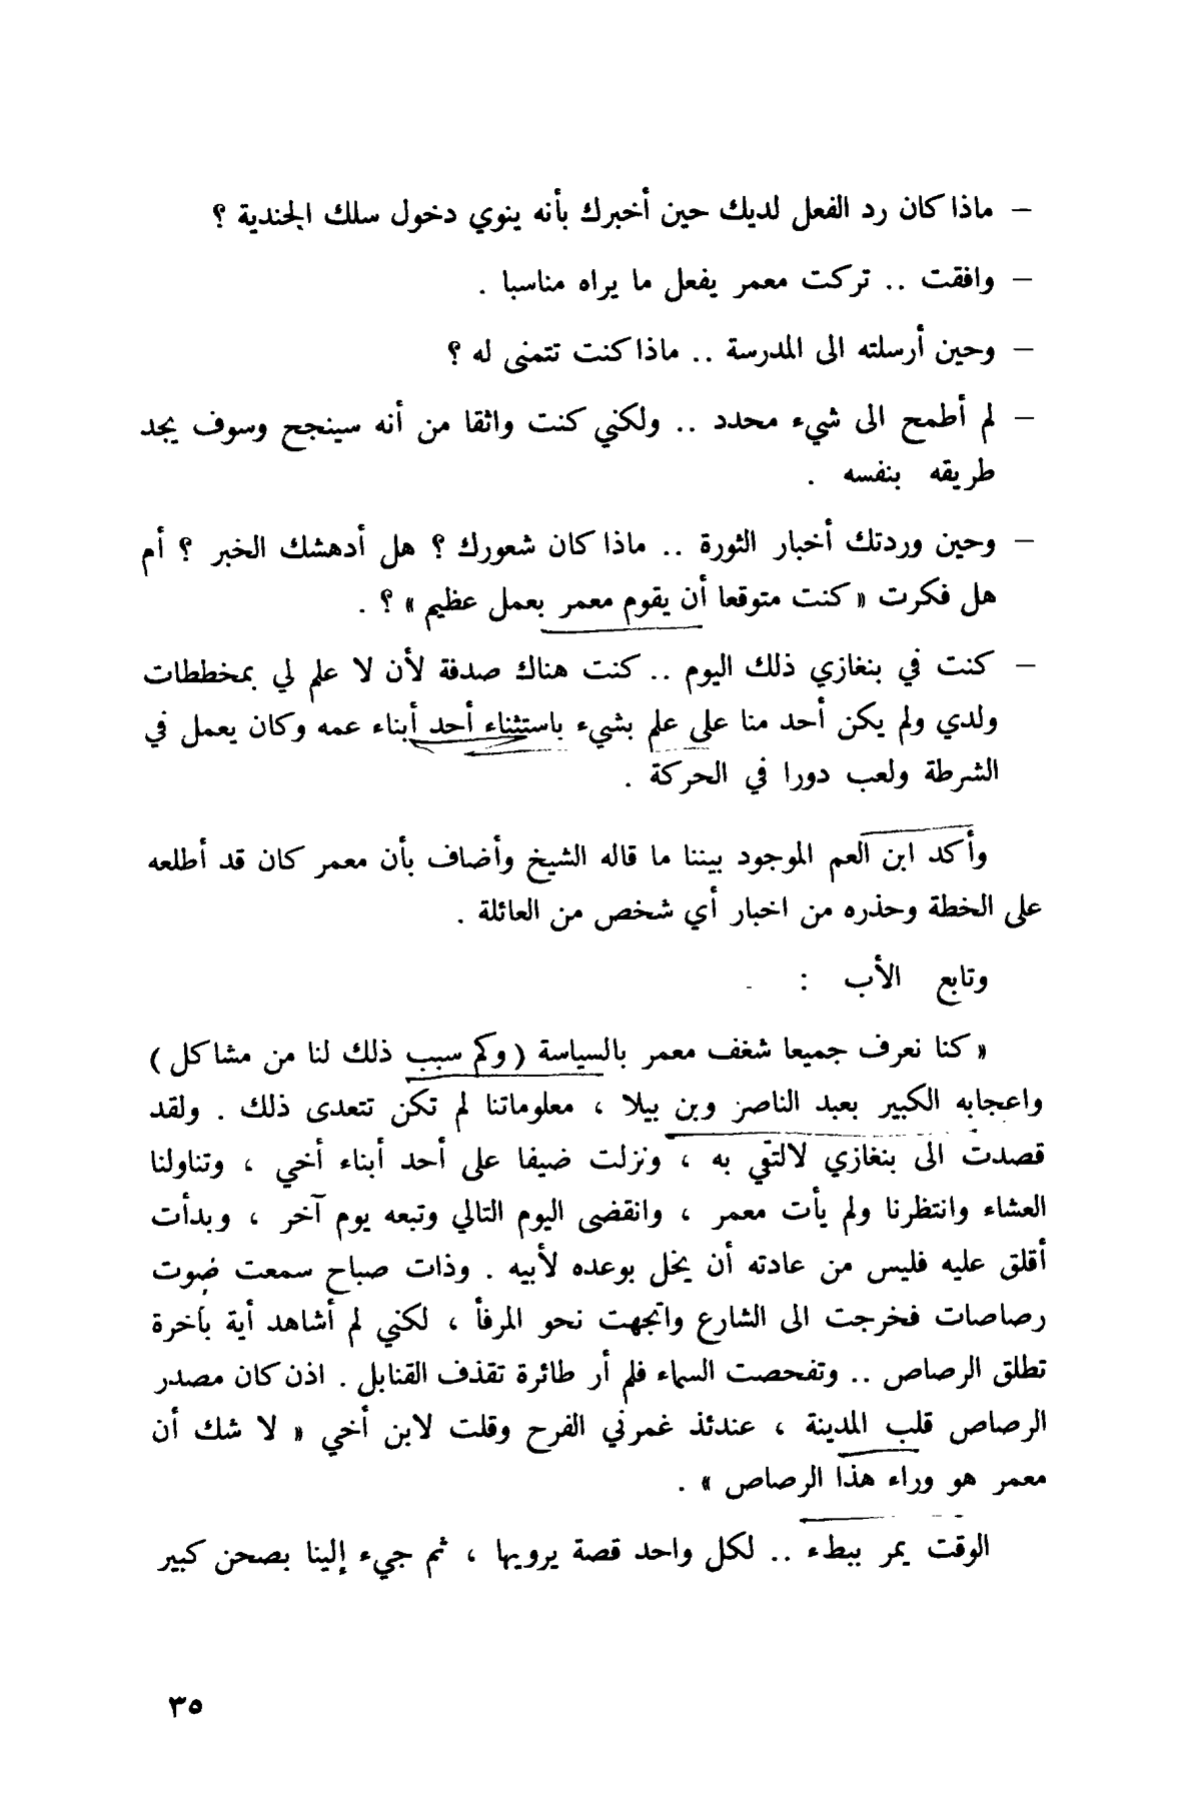 – ماذا كان رد الفعل لديك حين أخبرك بأنه ينوي دخول سلك الجندية ؟
– وافقت .. تركت معمر يفعل ما يراه مناسبا .
– وحين أرسلته الى المدرسة .. ماذا كنت تتمنى له ؟
– لم أطمح الى شيء محدد .. ولكني كنت واثقا من أنه سينجح وسوف يجد
طريقه بنفسه .
– وحين وردتك أخبار الثورة .. ماذا كان شعورك ؟ هل أدهشك الخبر ؟ أم
هل فكرت « كنت متوقعا أن يقوم معمر بعمل عظيم » ؟ .
– كنت في بنغازي ذلك اليوم .. كنت هناك صدفة لأن لا علم لي بمخططات
ولدي ولم يكن أحد منا على علم بشيء باستثناء أحد أبناء عمه وكان يعمل في
الشرطة ولعب دورا في الحركة .
وأكد ابن العم الموجود بيننا ما قاله الشيخ وأضاف بأن معمر كان قد أطلعه
على الخطة وحذره من اخبار أي شخص من العائلة .
وتابع الأب :
« كنا نعرف جميعا شغف معمر بالسياسة ( وكم سبب ذلك لنا من مشاكل )
واعجابه الكبير بعبد الناصر وبن بيلا ، معلوماتنا لم تكن تتعدى ذلك . ولقد
قصدت الى بنغازي لالتقي به ، ونزلت ضيفا على أحد أبناء أخي ، وتناولنا
العشاء وانتظرنا ولم يأت معمر ، وانقضى اليوم التالي وتبعه يوم آخر ، وبدأت
أقلق عليه فليس من عادته أن يخل بوعده لأبيه . وذات صباح سمعت صوت
رصاصات فخرجت الى الشارع واتجهت نحو المرفأ ، لكني لم أشاهد أية باخرة
تطلق الرصاص .. وتفحصت السماء فلم أر طائرة تقذف القنابل . اذن كان مصدر
الرصاص قلب المدينة ، عندئذ غمرني الفرح وقلت لابن أخي « لا شك أن
معمر هو وراء هذا الرصاص » .
الوقت يمر ببطء .. لكل واحد قصة يرويها ، ثم جيء إلينا بصحن كبير
٣٥